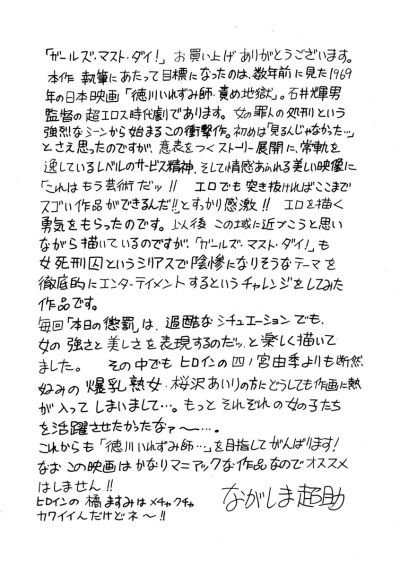 「ガールズ・マスト・ダイ!」お買い上げありがとうございます。
本作執筆にあたって目標になったのは、数年前に見た1969
年の日本映画「徳川いれずみ師・責め地獄」。石井輝男
監督の超エロス時代劇であります。女の罪人の処刑という
強烈なシーンから始まるこの衝撃作。初めは「見るんじゃなかった…」
とさえ思ったのですが、意表をつくストーリー展開に、常軌を
逸しているレベルのサービス精神、そして情感あふれる美しい映像に
「これはもう芸術だッ!! エロでも突き抜ければここまで
スゴい作品ができるんだ!!」とすっかり感激!! エロを描く
勇気をもらったのです。以後この域に近づこうと思い
ながら描いているのですが、「ガールズ・マスト・ダイ!」も
女死刑囚というシリアスで陰惨になりそうなテーマを
徹底的にエンターテイメントするというチャレンジをしてみた
作品です。
毎回「本日の懲罰」は、過酷なシチュエーションでも、
女の強さと美しさを表現するのだッ、と楽しく描いて
ました。 その中でもヒロインの四ノ宮由季よりも断然、
好みの爆乳熟女・桜沢あいりの方にどうしても作画に熱
が入ってしまいまして…。もっとそれぞれの女の子たち
を活躍させたかったなァ〜…。
これからも「徳川いれずみ師…」を目指してがんばります!
なお この映画はかなりマニアックな作品なのでオススメ
はしません!!
ヒロインの橘ますみはメチャクチャ
カワイイんだけどネ〜!!
ながしま超助